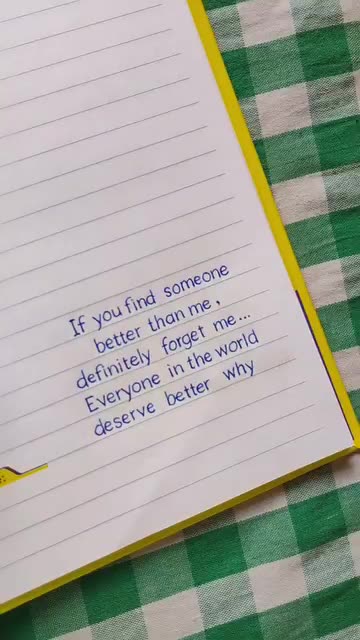 If you find someone
better than me,
definitely forget me...
Everyone in the world
deserve better why